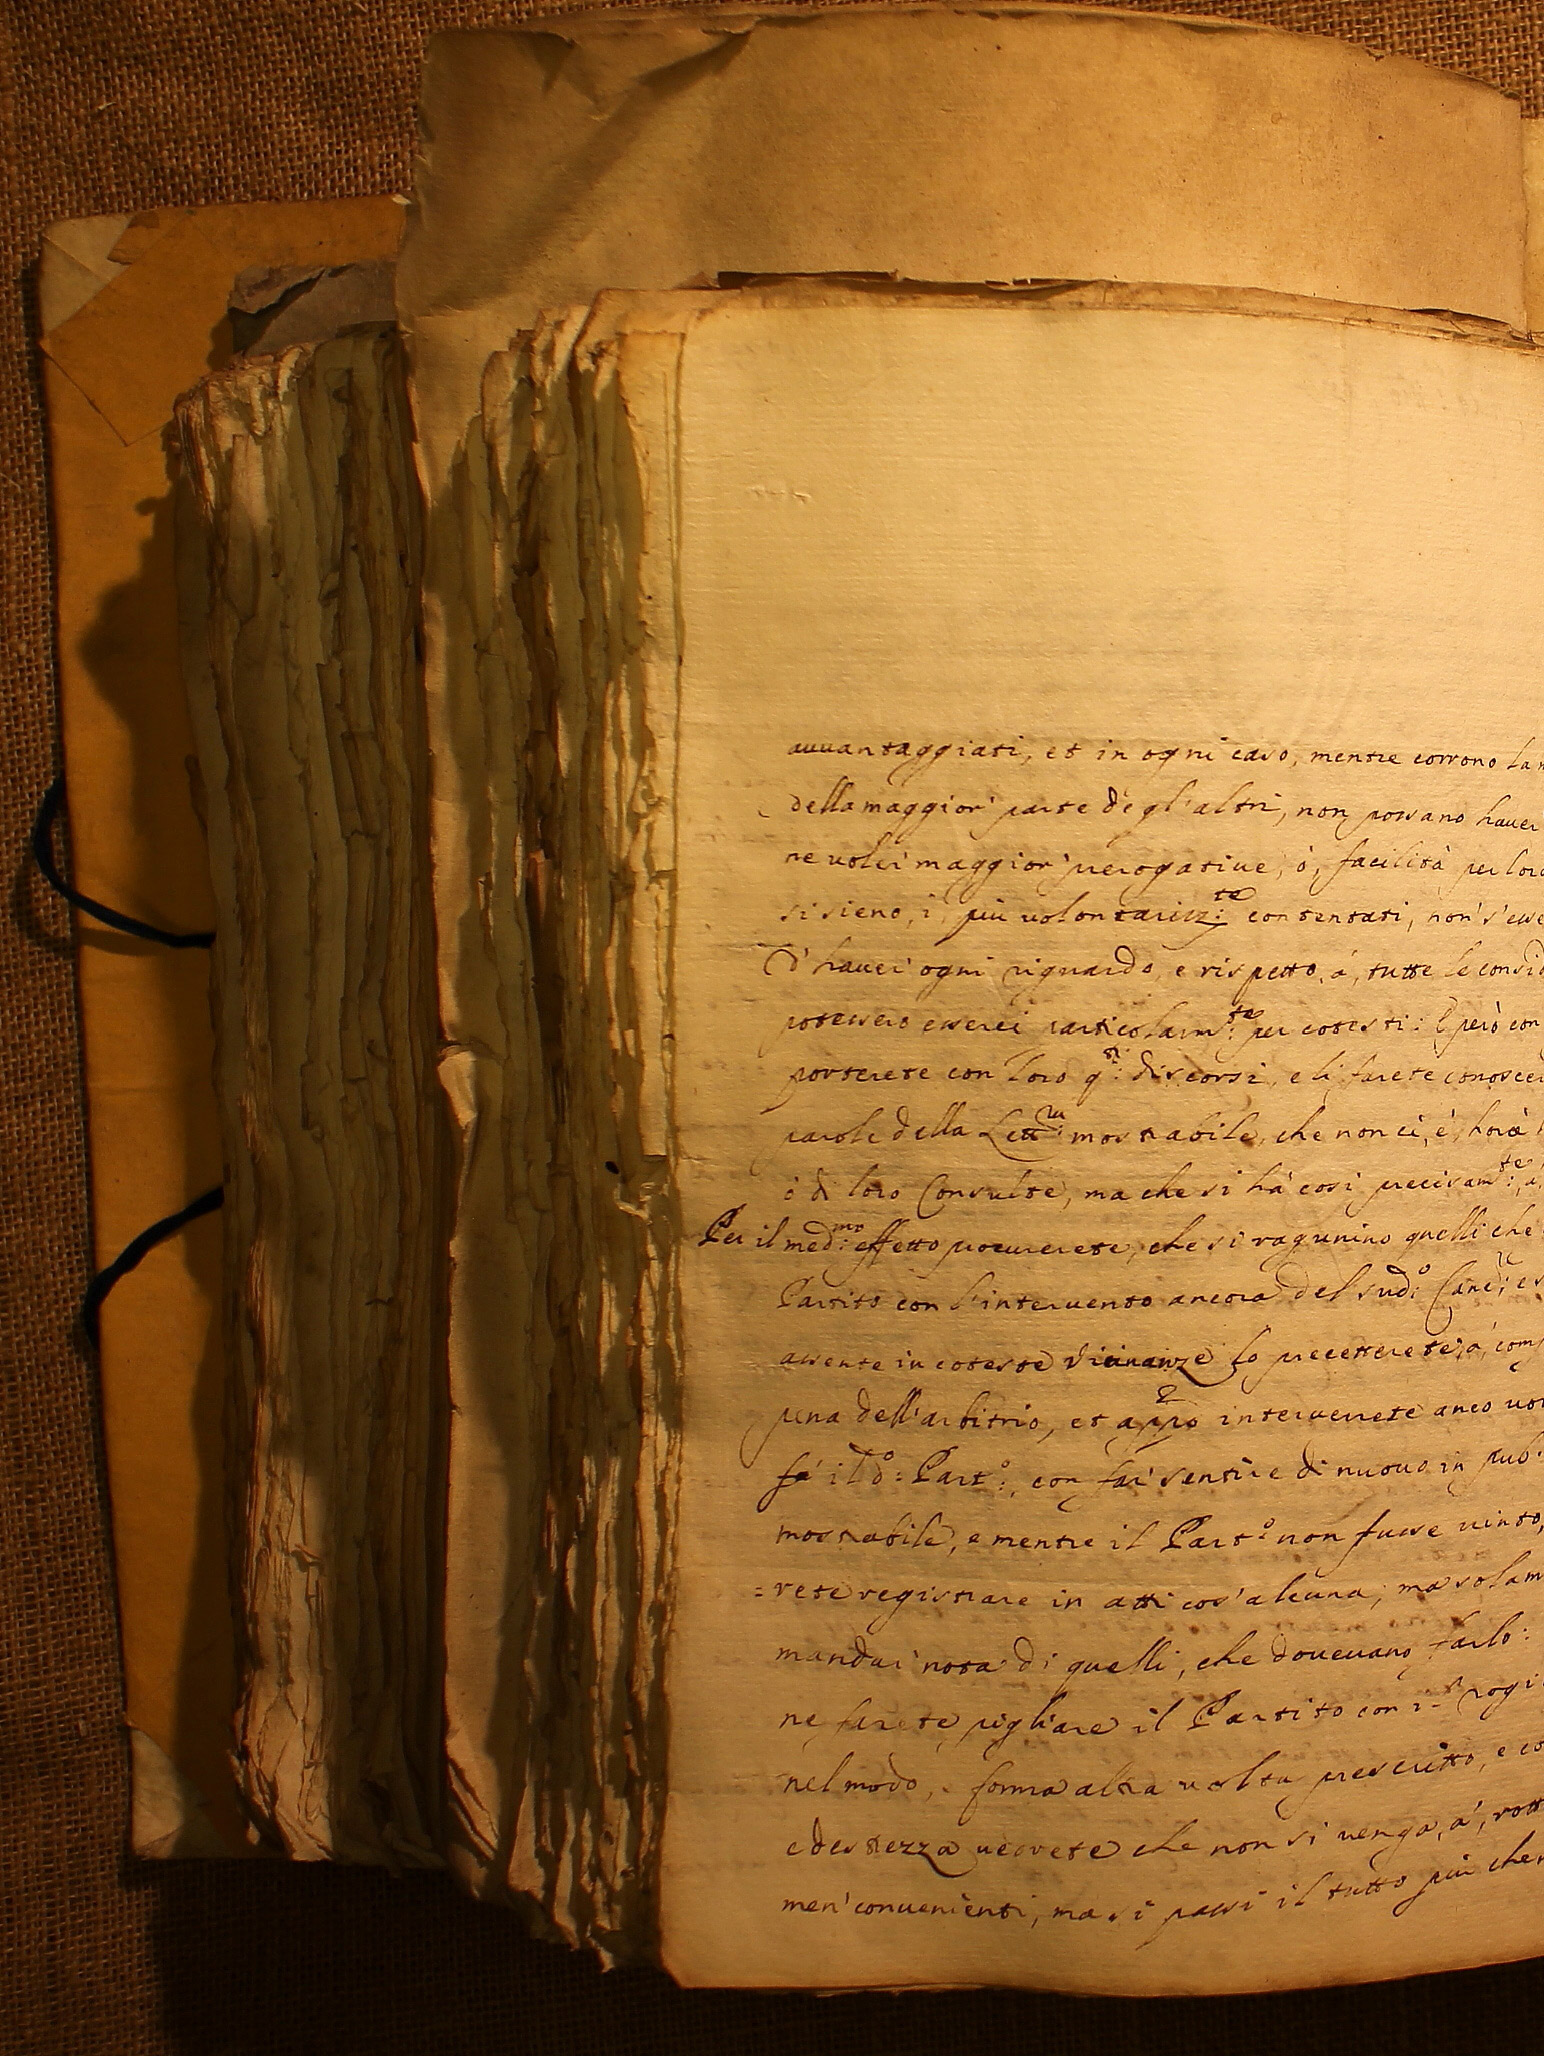 auuantaggiati, et in ogni caso, mentre corrono
della maggior' parte degl'altri, non possano hauer
ne uoler' maggior' prerogatiue, ò, facilità per loro
si sieno, i, più uolontariam:te contentati, non s'esse
D'hauer' ogni riguardo, e rispetto, à, tutte le consid
potessero esserci particolarm:te per cotesti: E però con
porterete con loro q:sti discorsi, e li farete conoscer
parole della Lett:ra mostrabile, che non ci, è, hora
ò di loro Consulte, ma che si hà così precisam:te, à,
Per il med:mo effetto procurerete, che si ragunino quelli che
Partito con l'interuento ancora del sud:o Canc:re, e s
assente in coteste vicinanze lo precetterete, à, comp
pena dell'arbitrio, et interuerrete anco uoi
fà il d:o Part:o, con far' sentire di nuouo in pub:
mostrabile, e mentre il Part:o non fusse uinto,
=rete registrare in atti cos'alcuna, ma solam
mandar' nota di quelli, che doueuano farlo:
ne farete pigliare il Partito con rogi
nel modo, e forma altra uolta prescritto, e co
e destrezza uedrete che non si uenga, à, rott
men' conuenienti, ma si passi il tutto più che